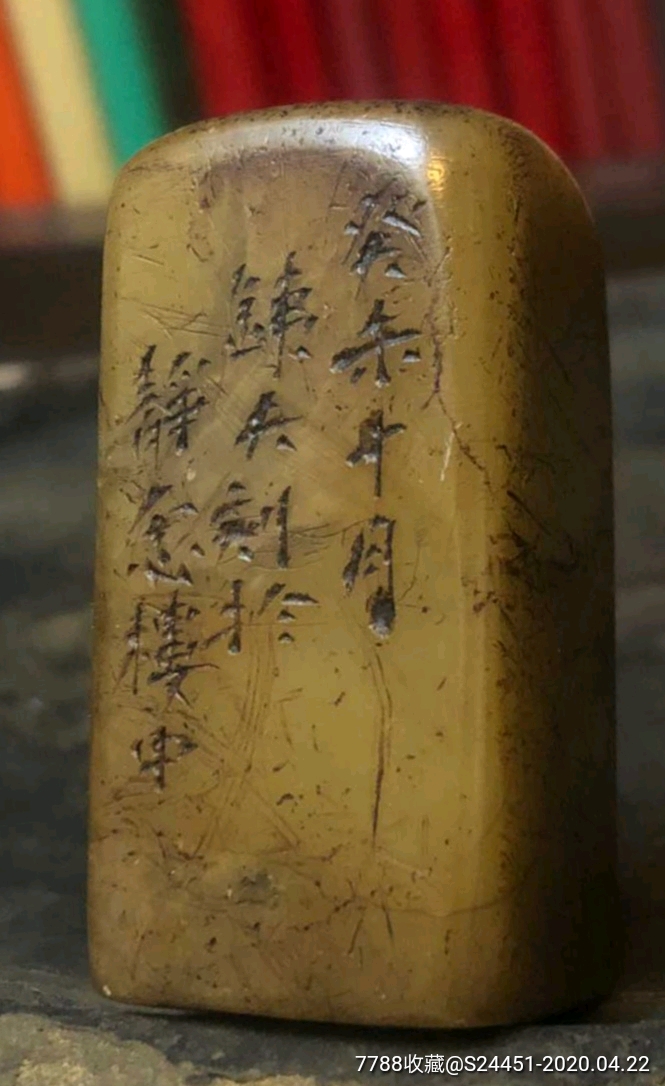 癸未十月
鐵兵刻於
靜念樓中
7788收藏@S24451-2020.04.22